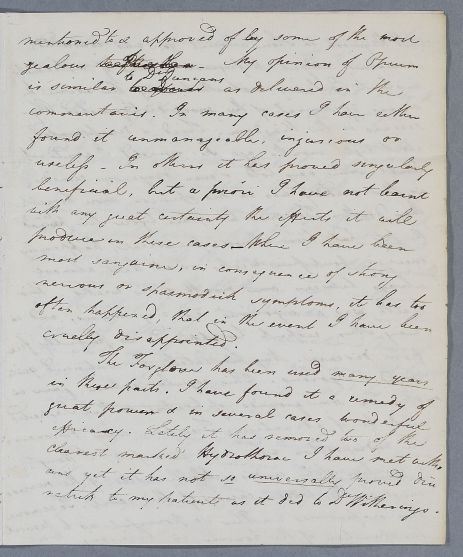 mentioned & approved of by some of the most
zealous My opinion of Opium
to Dr Duncans
is similar as delivered in the
commentaries. In many cases I have either
found it unmanageable, injurious or
useless - In others it has proved singularly
beneficial, but a priori I have not learnt
with any great certainty the effects it will
produce in these cases - Where I have been
most sanguine, in consequence of strong
nervous or spasmodick symptoms, it has too
often happened, that in the event I have been
cruelly disappointed.
The Foxglove has been used many years
in these parts. I have found it a remedy of
great power & in several cases wonderful
efficacy. Lately it has removed two of the
clearest marked Hydrothorax I have met with,
and yet it has not so universally proved diu
retick to my patients as it did to Dr Witherings.